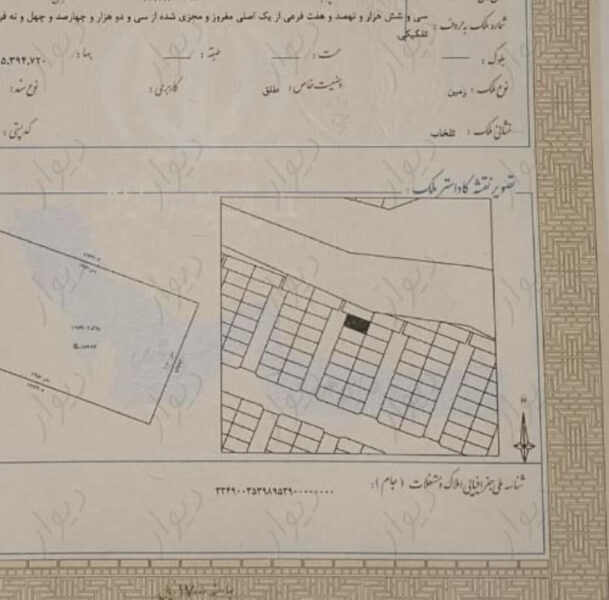 سی و شش هزار و نهصد و هفت فرعی از یک اصلی مفروز و مجزی شده از سی و دو هزار و چهارصد و چهل و نه فر
شماره ملک به حروف :
تفکیکی
بلوک :
سمت :
طبقه :
بها :
۵,۳۹۴,۷۲۰
نوع ملک : زمین
وضعیت خاص : طلق
کاربری :
نوع سند :
نشانی ملک : تلخاب
کد پستی :
تصویر نقشه کاداستر ملک :
N
شناسه ملی جغرافیایی املاک و مستغلات (جام) :
دیوار